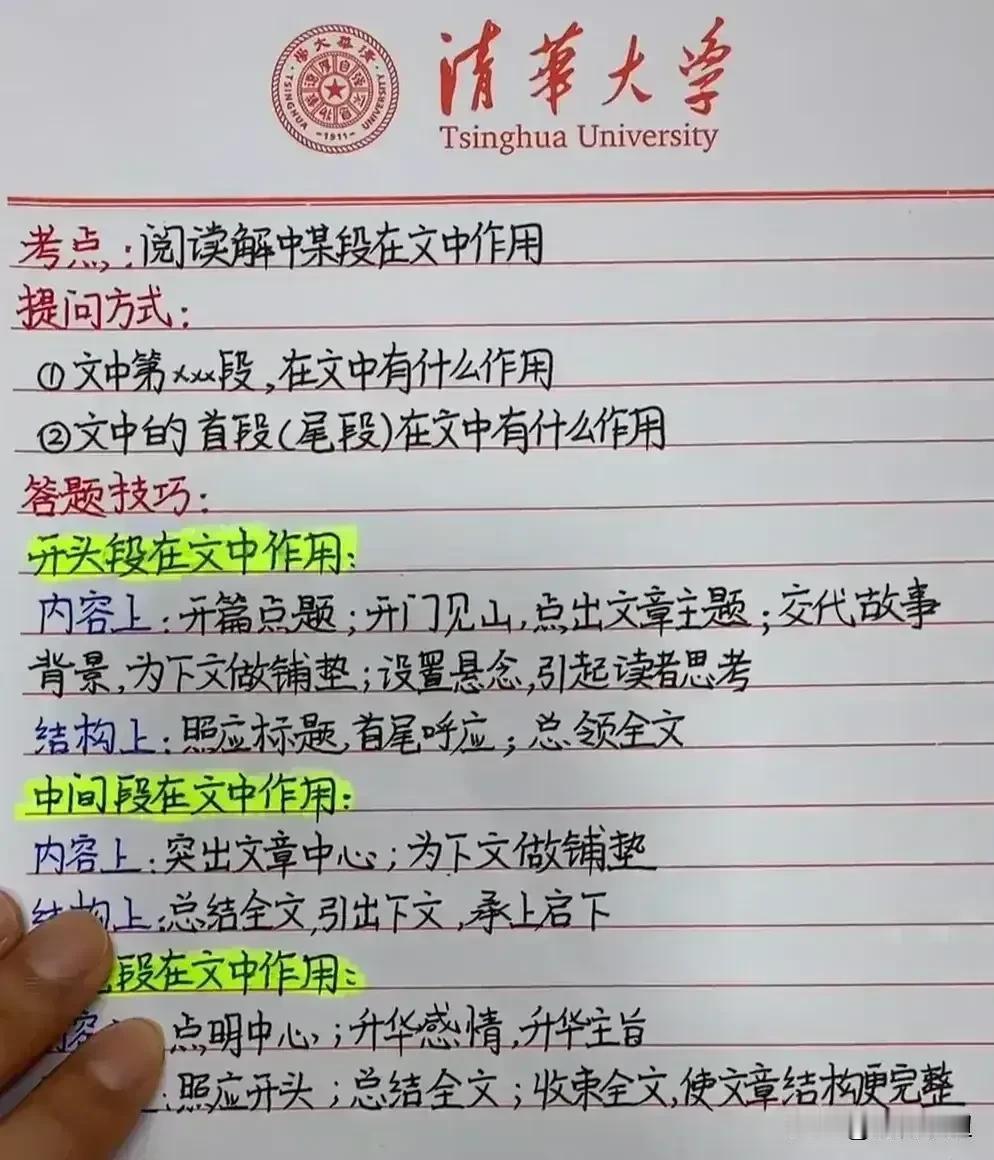 清華大学
Tsinghua University
TSINGHUA UNIVERSITY
-1911-
考点:阅读解中某段在文中作用
提问方式:
①文中第xxx段,在文中有什么作用
②文中的首段(尾段)在文中有什么作用
答题技巧:
开头段在文中作用:
内容上:开篇点题;开门见山,点出文章主题;交代故事
背景,为下文做铺垫;设置悬念,引起读者思考
结构上:照应标题,首尾呼应;总领全文
中间段在文中作用:
内容上:突出文章中心;为下文做铺垫
结构上:总结全文,引出下文,承上启下
段在文中作用:
容 点明中心;升华感情,升华主旨
:照应开头;总结全文;收束全文,使文章结构更完整